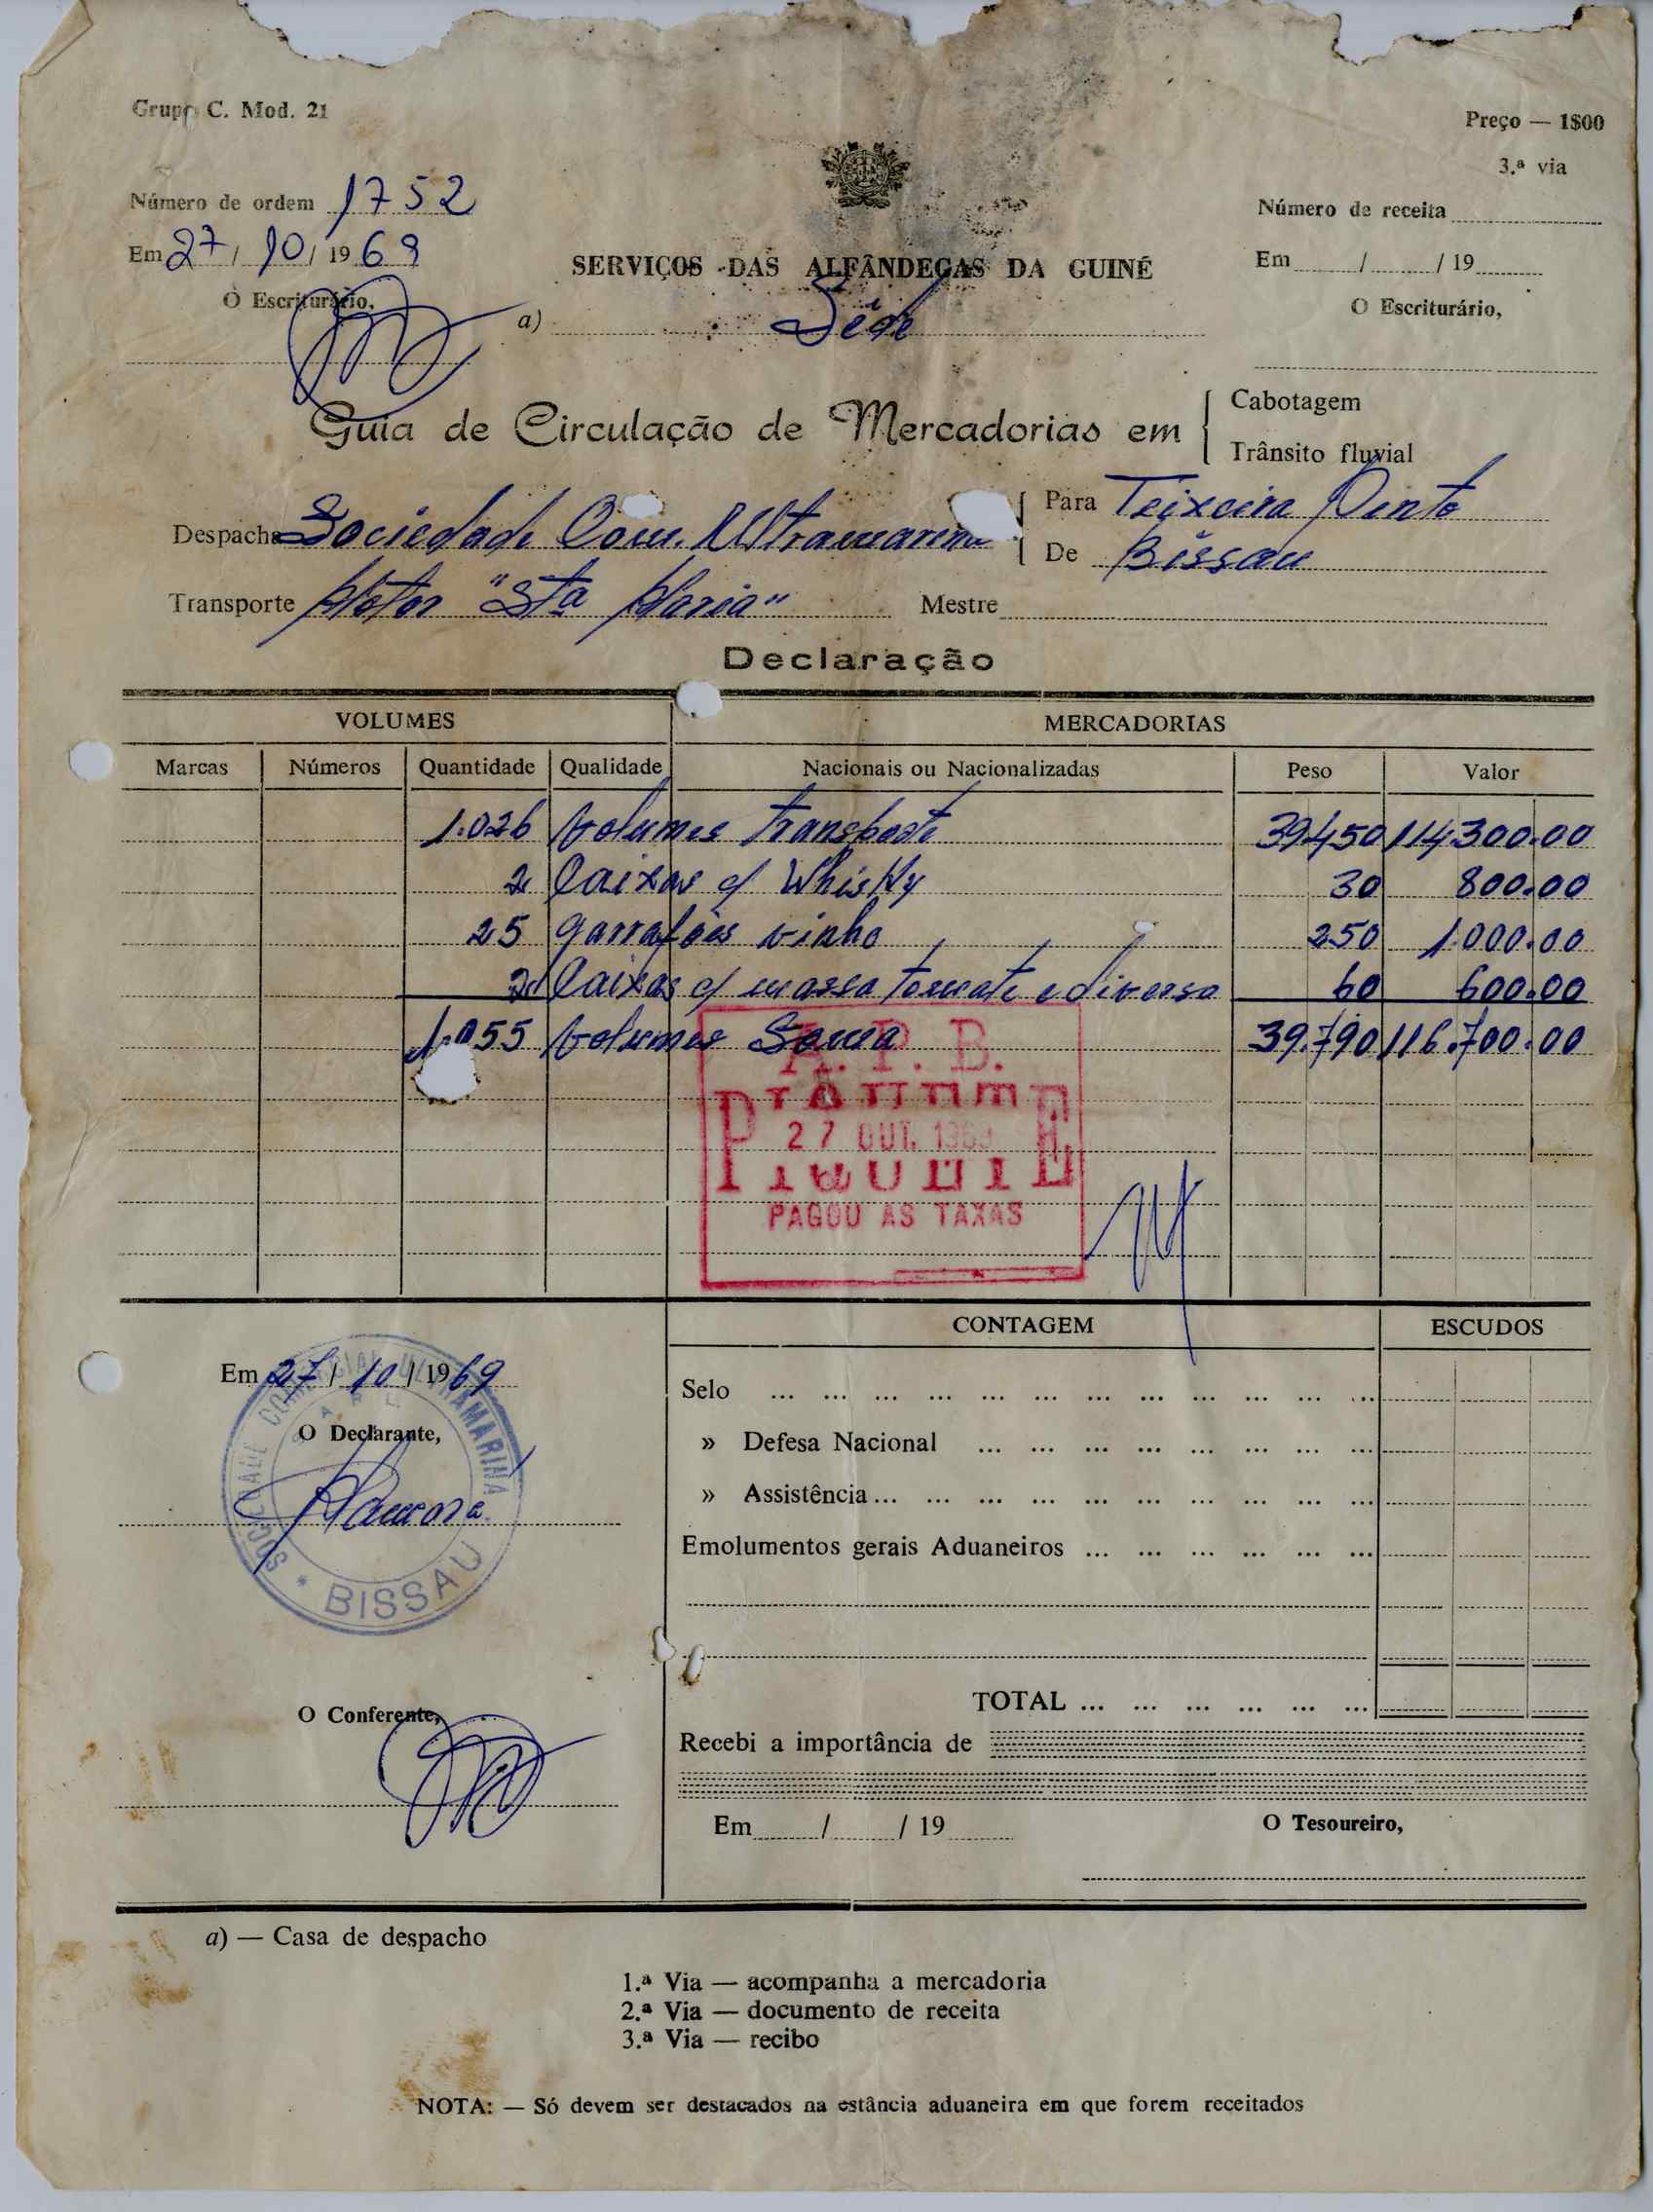 Grupo C. Mod. 21
Preço — 1$00
3.ª via
Número de ordem 1752
Em 27 / 10 / 19 69
O Escriturário,
SERVIÇOS DAS ALFÂNDEGAS DA GUINÉ
a) Séde
Número de receita
Em / / 19
O Escriturário,
Guia de Circulação de Mercadorias em
Cabotagem
Trânsito fluvial
Despacha Sociedade Com. Ultramarina
Para Teixeira Pinto
De Bissau
Transporte Motor "Sta Maria" Mestre
Declaração
VOLUMES MERCADORIAS
Marcas Números Quantidade Qualidade Nacionais ou Nacionalizadas Peso Valor
1.026 Volumes Transporte 39450 114300.00
2 Caixas c/ Whisky 30 800.00
25 garrafões vinho 250 1000.00
2 Caixas c/ massa tomate e diverso 60 600.00
1.055 Volumes Soma 39.790 116.700.00
A. P. B.
27 OUT. 1969
PAGOU AS TAXAS
CONTAGEM ESCUDOS
Em 27 / 10 / 1969
O Declarante,
SOCIEDADE COMERCIAL ULTRAMARINA
S A R L
* BISSAU
Selo ... ... ... ... ... ... ... ... ... ... ... ...
» Defesa Nacional ... ... ... ... ... ... ... ...
» Assistência ... ... ... ... ... ... ... ... ... ...
Emolumentos gerais Aduaneiros ... ... ... ... ... ...
TOTAL ... ... ... ... ... ...
O Conferente,
Recebi a importância de
Em / / 19
O Tesoureiro,
a) — Casa de despacho
1.ª Via — acompanha a mercadoria
2.ª Via — documento de receita
3.ª Via — recibo
NOTA: — Só devem ser destacados na estância aduaneira em que forem receitados